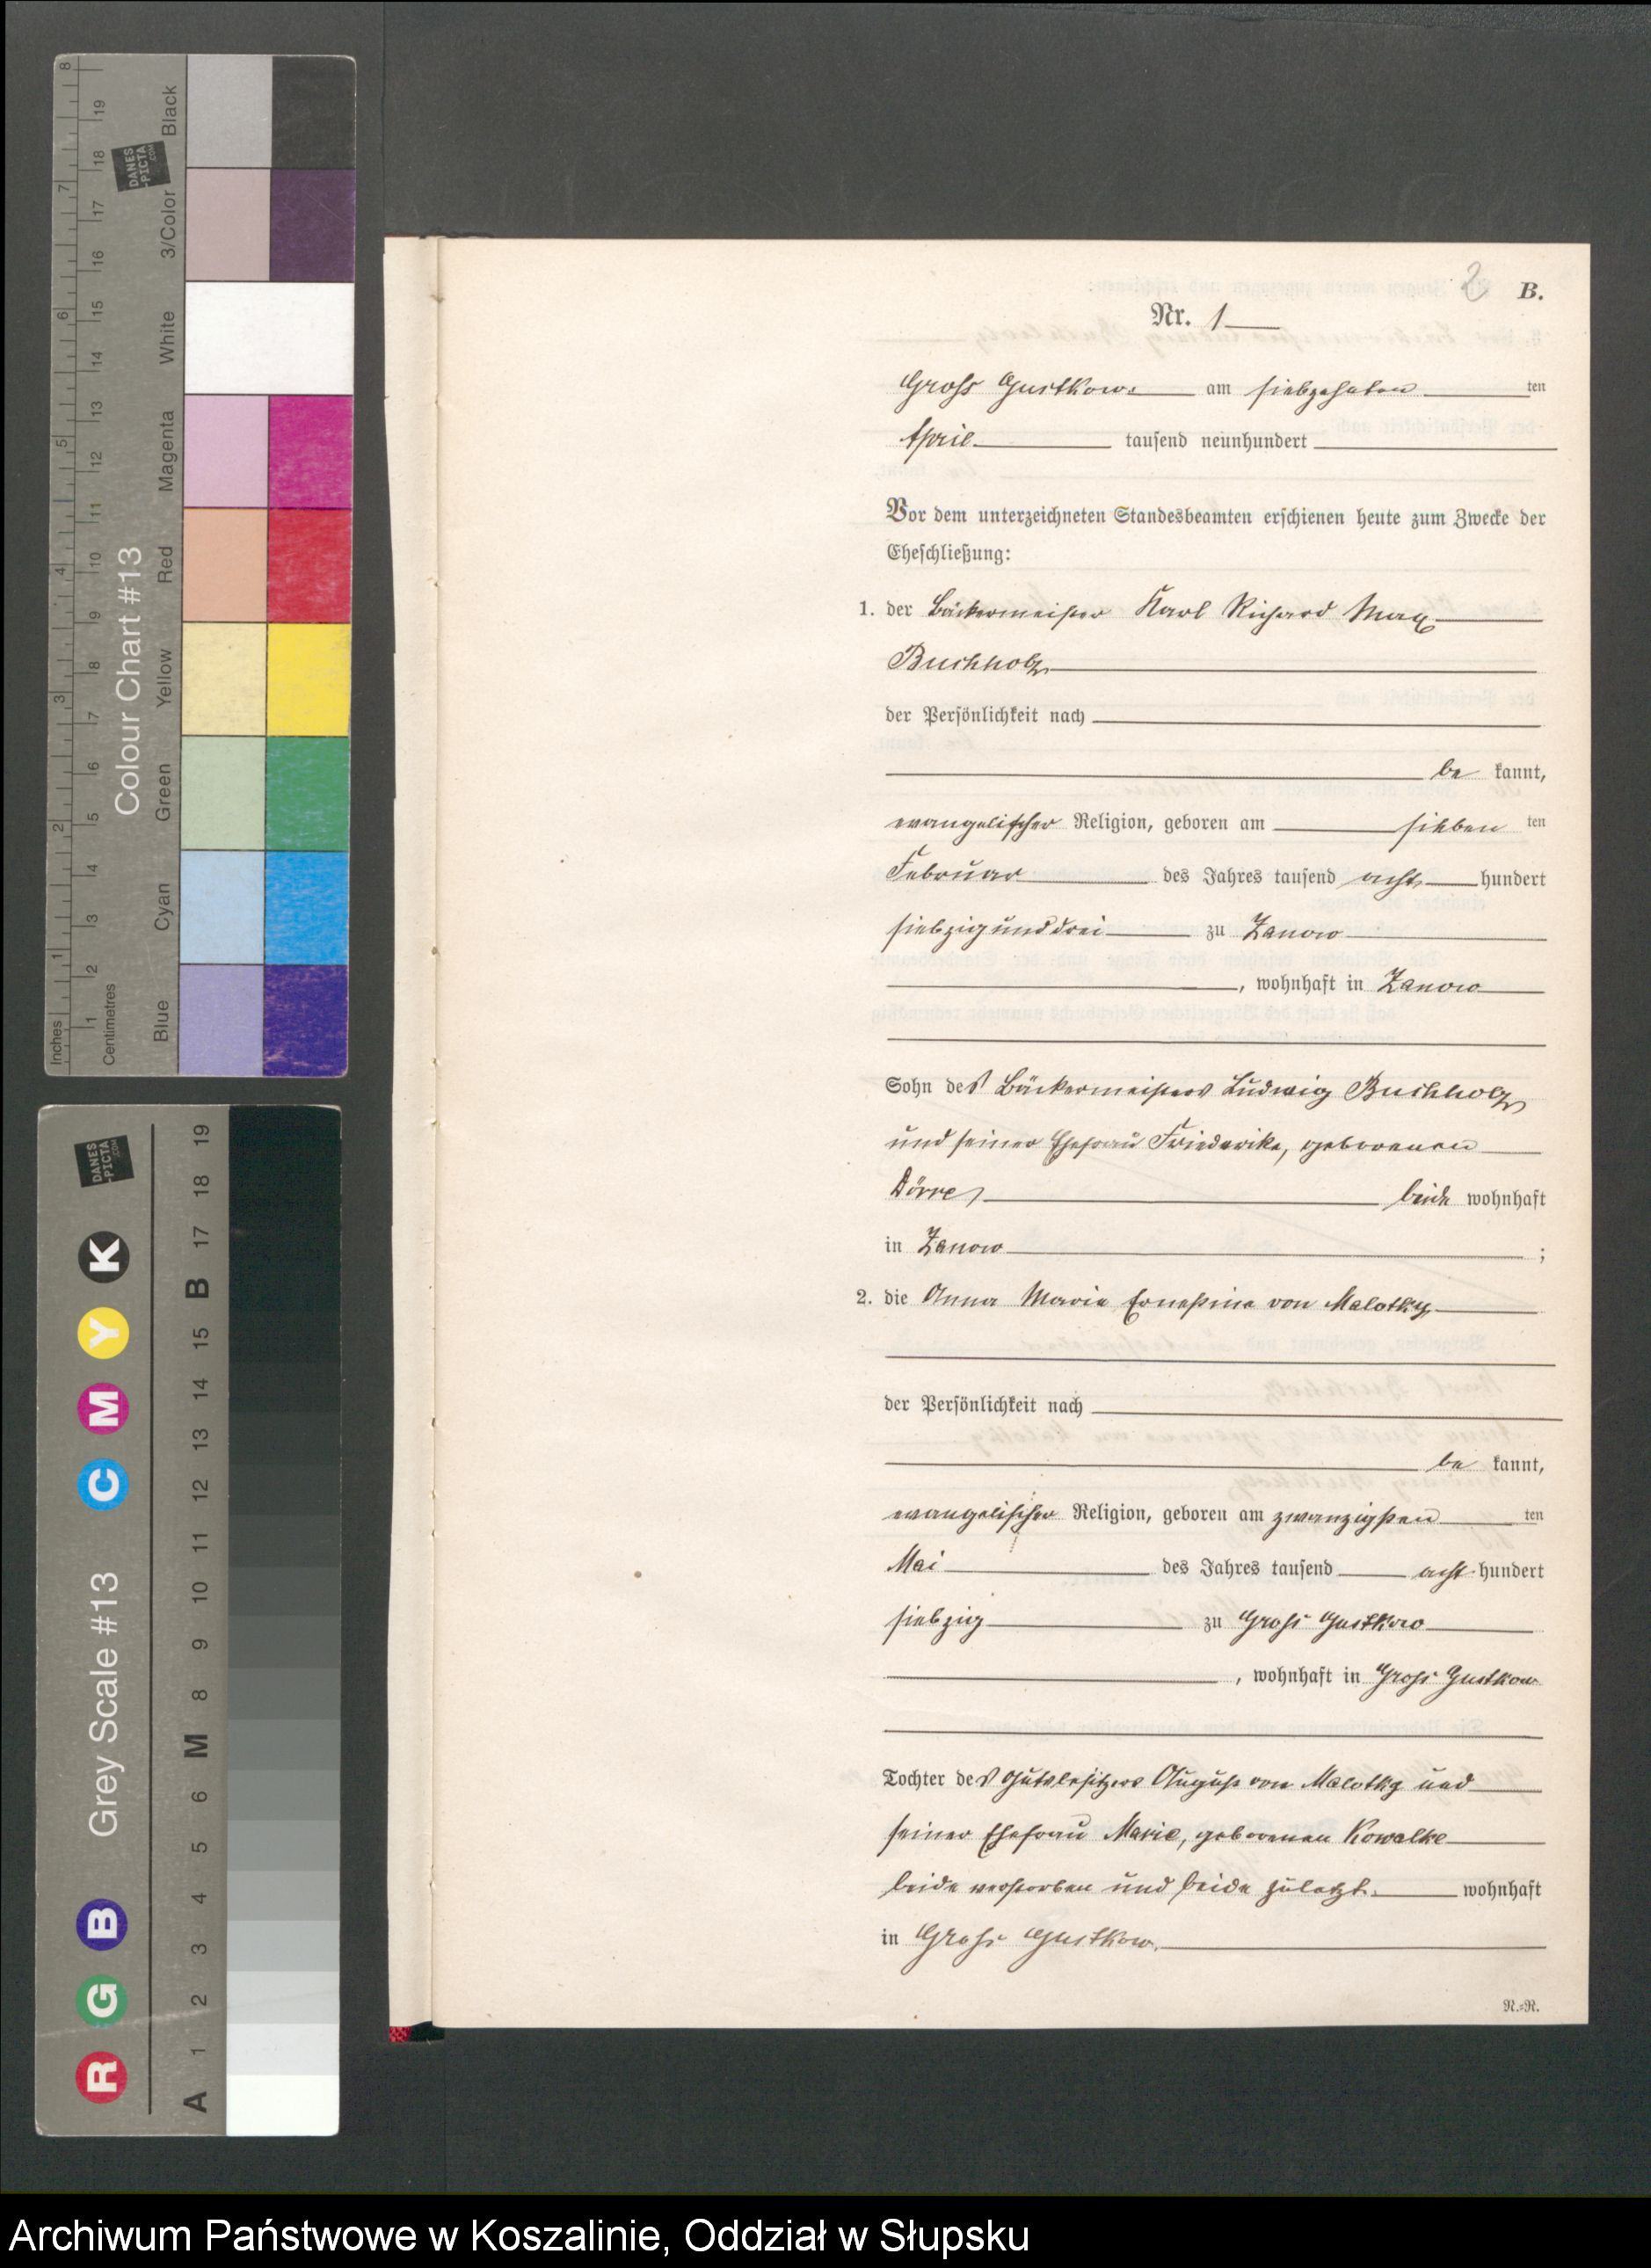 8
7
6
5
4
3
2
1
Inches
19
18
17
16
15
14
13
12
11
10
9
8
7
6
5
4
3
2
1
Centimetres
DANES
-PICTA
.COM
Colour Chart #13
Black
3/Color
White
Magenta
Red
Yellow
Green
Cyan
Blue
DANES
-PICTA
.COM
Grey Scale #13
K
Y
M
C
B
G
R
19
18
17
B
15
14
13
12
11
10
9
8
M
6
5
4
3
2
1
A
2 B.
Nr. 1
Gross Gustkow am siebzehnten ten
April tausend neunhundert
Vor dem unterzeichneten Standesbeamten erschienen heute zum Zwecke der
Eheschließung:
1. der Bäckermeister Karl Richard Max
Buchholz
der Persönlichkeit nach
be kannt,
evangelischer Religion, geboren am sieben ten
Februar des Jahres tausend acht hundert
siebzig und drei zu Zanow
, wohnhaft in Zanow
Sohn des Bäckermeisters Ludwig Buchholz
und seiner Ehefrau Friederike, geborenen
Dörre, beide wohnhaft
in Zanow ;
2. die Anna Marie Ernestine von Malotky
der Persönlichkeit nach
be kannt,
evangelischer Religion, geboren am zwanzigsten ten
Mai des Jahres tausend acht hundert
siebzig zu Gross Gustkow
, wohnhaft in Gross Gustkow
Tochter des Gutsbesitzers August von Malotky und
seiner Ehefrau Marie, geborenen Kowalke
beide verstorben und beide zuletzt wohnhaft
in Gross Gustkow.
N.=N.
Archiwum Państwowe w Koszalinie, Oddział w Słupsku